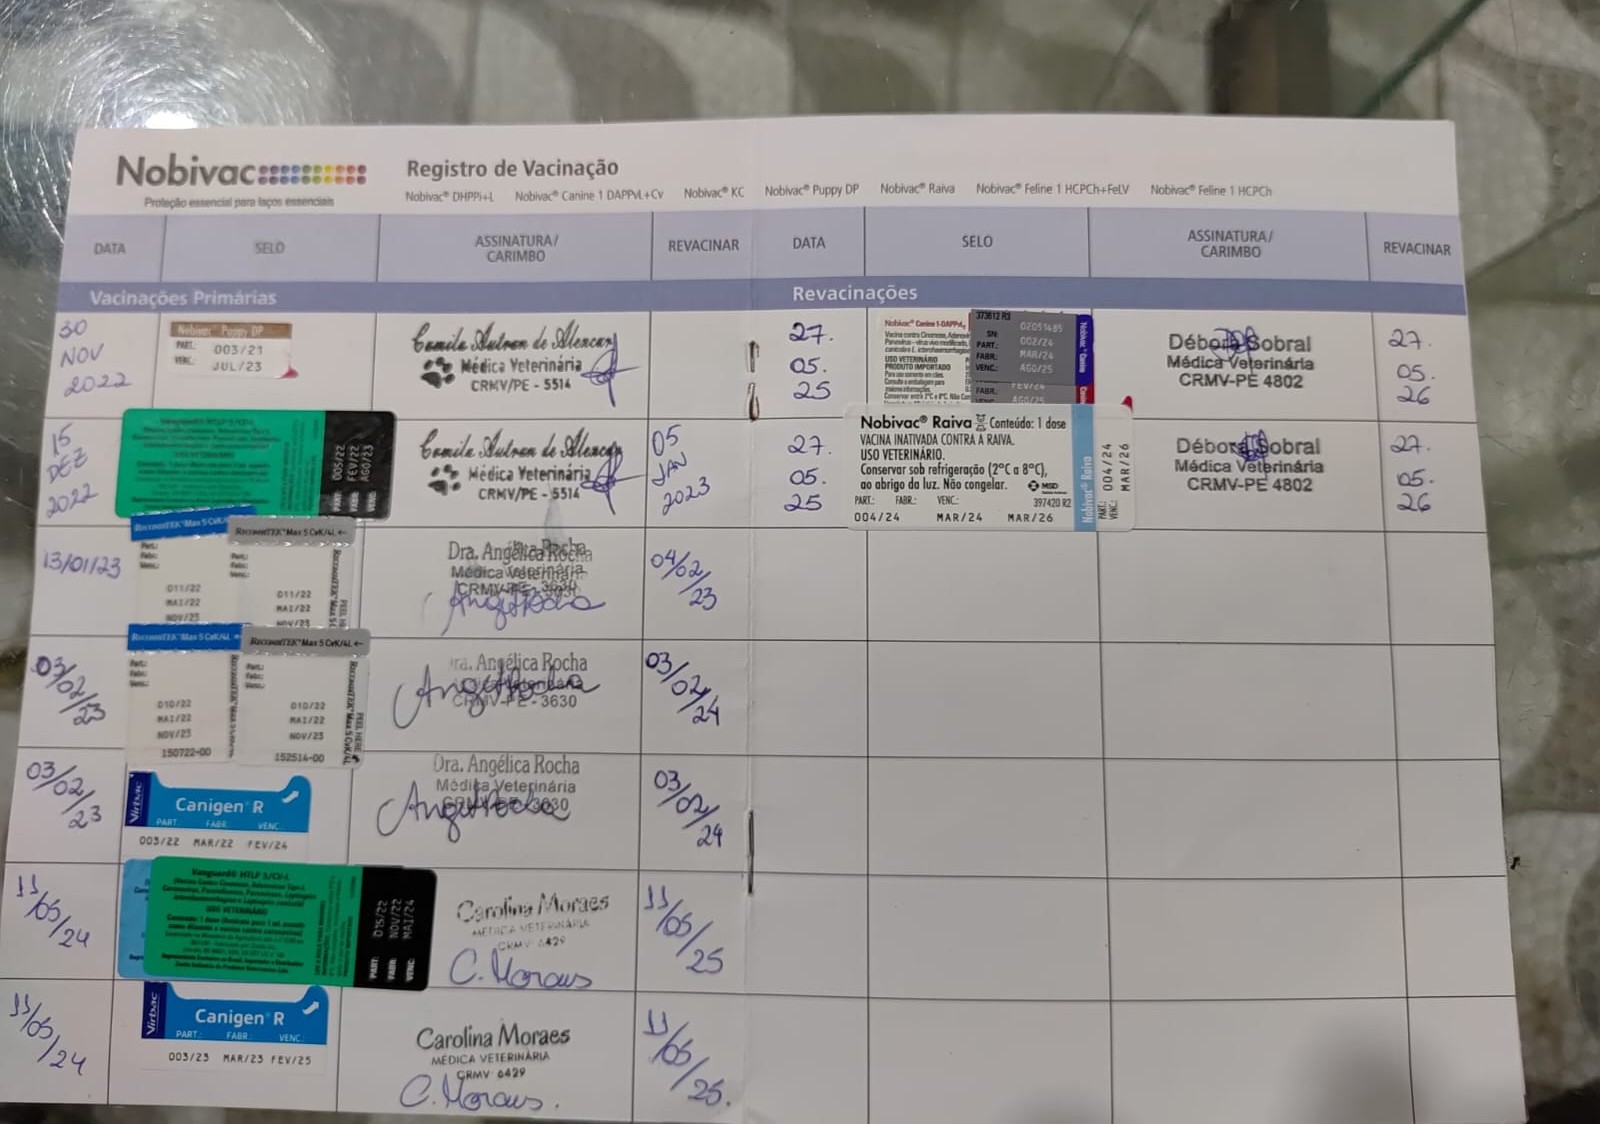 Nobivac
Proteção essencial para laços essenciais
Registro de Vacinação
Nobivac® DHPPi+L Nobivac® Canine 1 DAPPvL+Cv Nobivac® KC Nobivac® Puppy DP Nobivac® Raiva Nobivac® Feline 1 HCPCh+FeLV Nobivac® Feline 1 HCPCh
DATA SELO ASSINATURA/ CARIMBO REVACINAR DATA SELO ASSINATURA/ CARIMBO REVACINAR
Vacinações Primárias
30
NOV
2022
Nobivac® Puppy DP
PART. 003/21
VENC. JUL/23
Camila Autran de Alencar
Médica Veterinária
CRMV/PE - 5514
15
DEZ
2022
USO VETERINÁRIO
PART: 005/22
FABR: FEV/22
VENC: AGO/23
Camila Autran de Alencar
Médica Veterinária
CRMV/PE - 5514
05
JAN
2023
13/01/23
RECOMBITEK® Max 5 CvK/4L
Part.:
Fabr.:
Venc.:
011/22
MAI/22
NOV/23
RECOMBITEK® Max 5 CvK/4L ←
Part.:
Fabr.:
Venc.:
011/22
MAI/22
NOV/23
PEEL HERE
Dra. Angélica Rocha
Médica Veterinária
CRMV-PE - 3630
04/02/23
03/02/23
RECOMBITEK® Max 5 CvK/4L ←
Part.:
Fabr.:
Venc.:
010/22
MAI/22
NOV/23
150722-00
RECOMBITEK® Max 5 CvK/4L ←
Part.:
Fabr.:
Venc.:
010/22
MAI/22
NOV/23
152514-00
PEEL HERE
Angélica Rocha
CRMV-PE - 3630
03/02/24
03/02/23
Virbac
Canigen® R
PART.: FABR.: VENC.:
003/22 MAR/22 FEV/24
Dra. Angélica Rocha
Médica Veterinária
CRMV-PE - 3630
03/02/24
11/05/24
Vanguard® HTLP 5/CV-L
USO VETERINÁRIO
PART: 015/22
FABR: NOV/22
VENC: MAI/24
Carolina Moraes
MÉDICA VETERINÁRIA
CRMV 6429
C. Moraes
11/05/25
11/05/24
Virbac
Canigen® R
PART.: FABR.: VENC.:
003/23 MAR/23 FEV/25
Carolina Moraes
MÉDICA VETERINÁRIA
CRMV 6429
C. Moraes.
11/05/25.
Revacinações
27.
05.
25
Nobivac® Canine 1-DAPPvL2
USO VETERINÁRIO
PRODUTO IMPORTADO
373612 R3
SN: 02051485
PART: 002/24
FABR: MAR/24
VENC: AGO/25
Débora Sobral
Médica Veterinária
CRMV-PE 4802
27.
05.
26
27.
05.
25
Nobivac® Raiva Conteúdo: 1 dose
VACINA INATIVADA CONTRA A RAIVA.
USO VETERINÁRIO.
Conservar sob refrigeração (2°C a 8°C),
ao abrigo da luz. Não congelar.
MSD
PART.: FABR.: VENC.: 397420 R2
004/24 MAR/24 MAR/26
Nobivac® Raiva
PART.: 004/24
VENC.: MAR/26
Débora Sobral
Médica Veterinária
CRMV-PE 4802
27.
05.
26